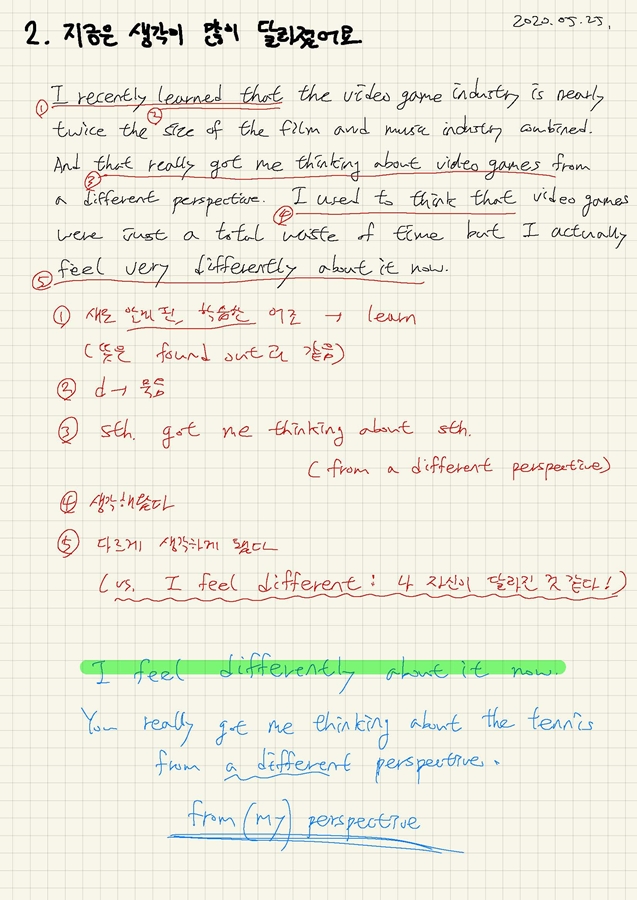 2020.05.25.
2. 지금은 생각이 많이 달라졌어요
① I recently learned that the video game industry is nearly
twice the ② size of the film and music industry combined.
And that really got me thinking about video games from
③ a different perspective. I used to think that video games
④ were just a total waste of time but I actually
⑤ feel very differently about it now.
① 새로 알게 된, 학습한 어조 → learn
(뜻은 found out과 같음)
② d → 묵음
③ sth. got me thinking about sth.
(from a different perspective)
④ 생각해왔다
⑤ 다르게 생각하게 됐다
(vs. I feel different : 나 자신이 달라진 것 같다!)
I feel differently about it now.
You really got me thinking about the tennis
from a different perspective.
from (my) perspective